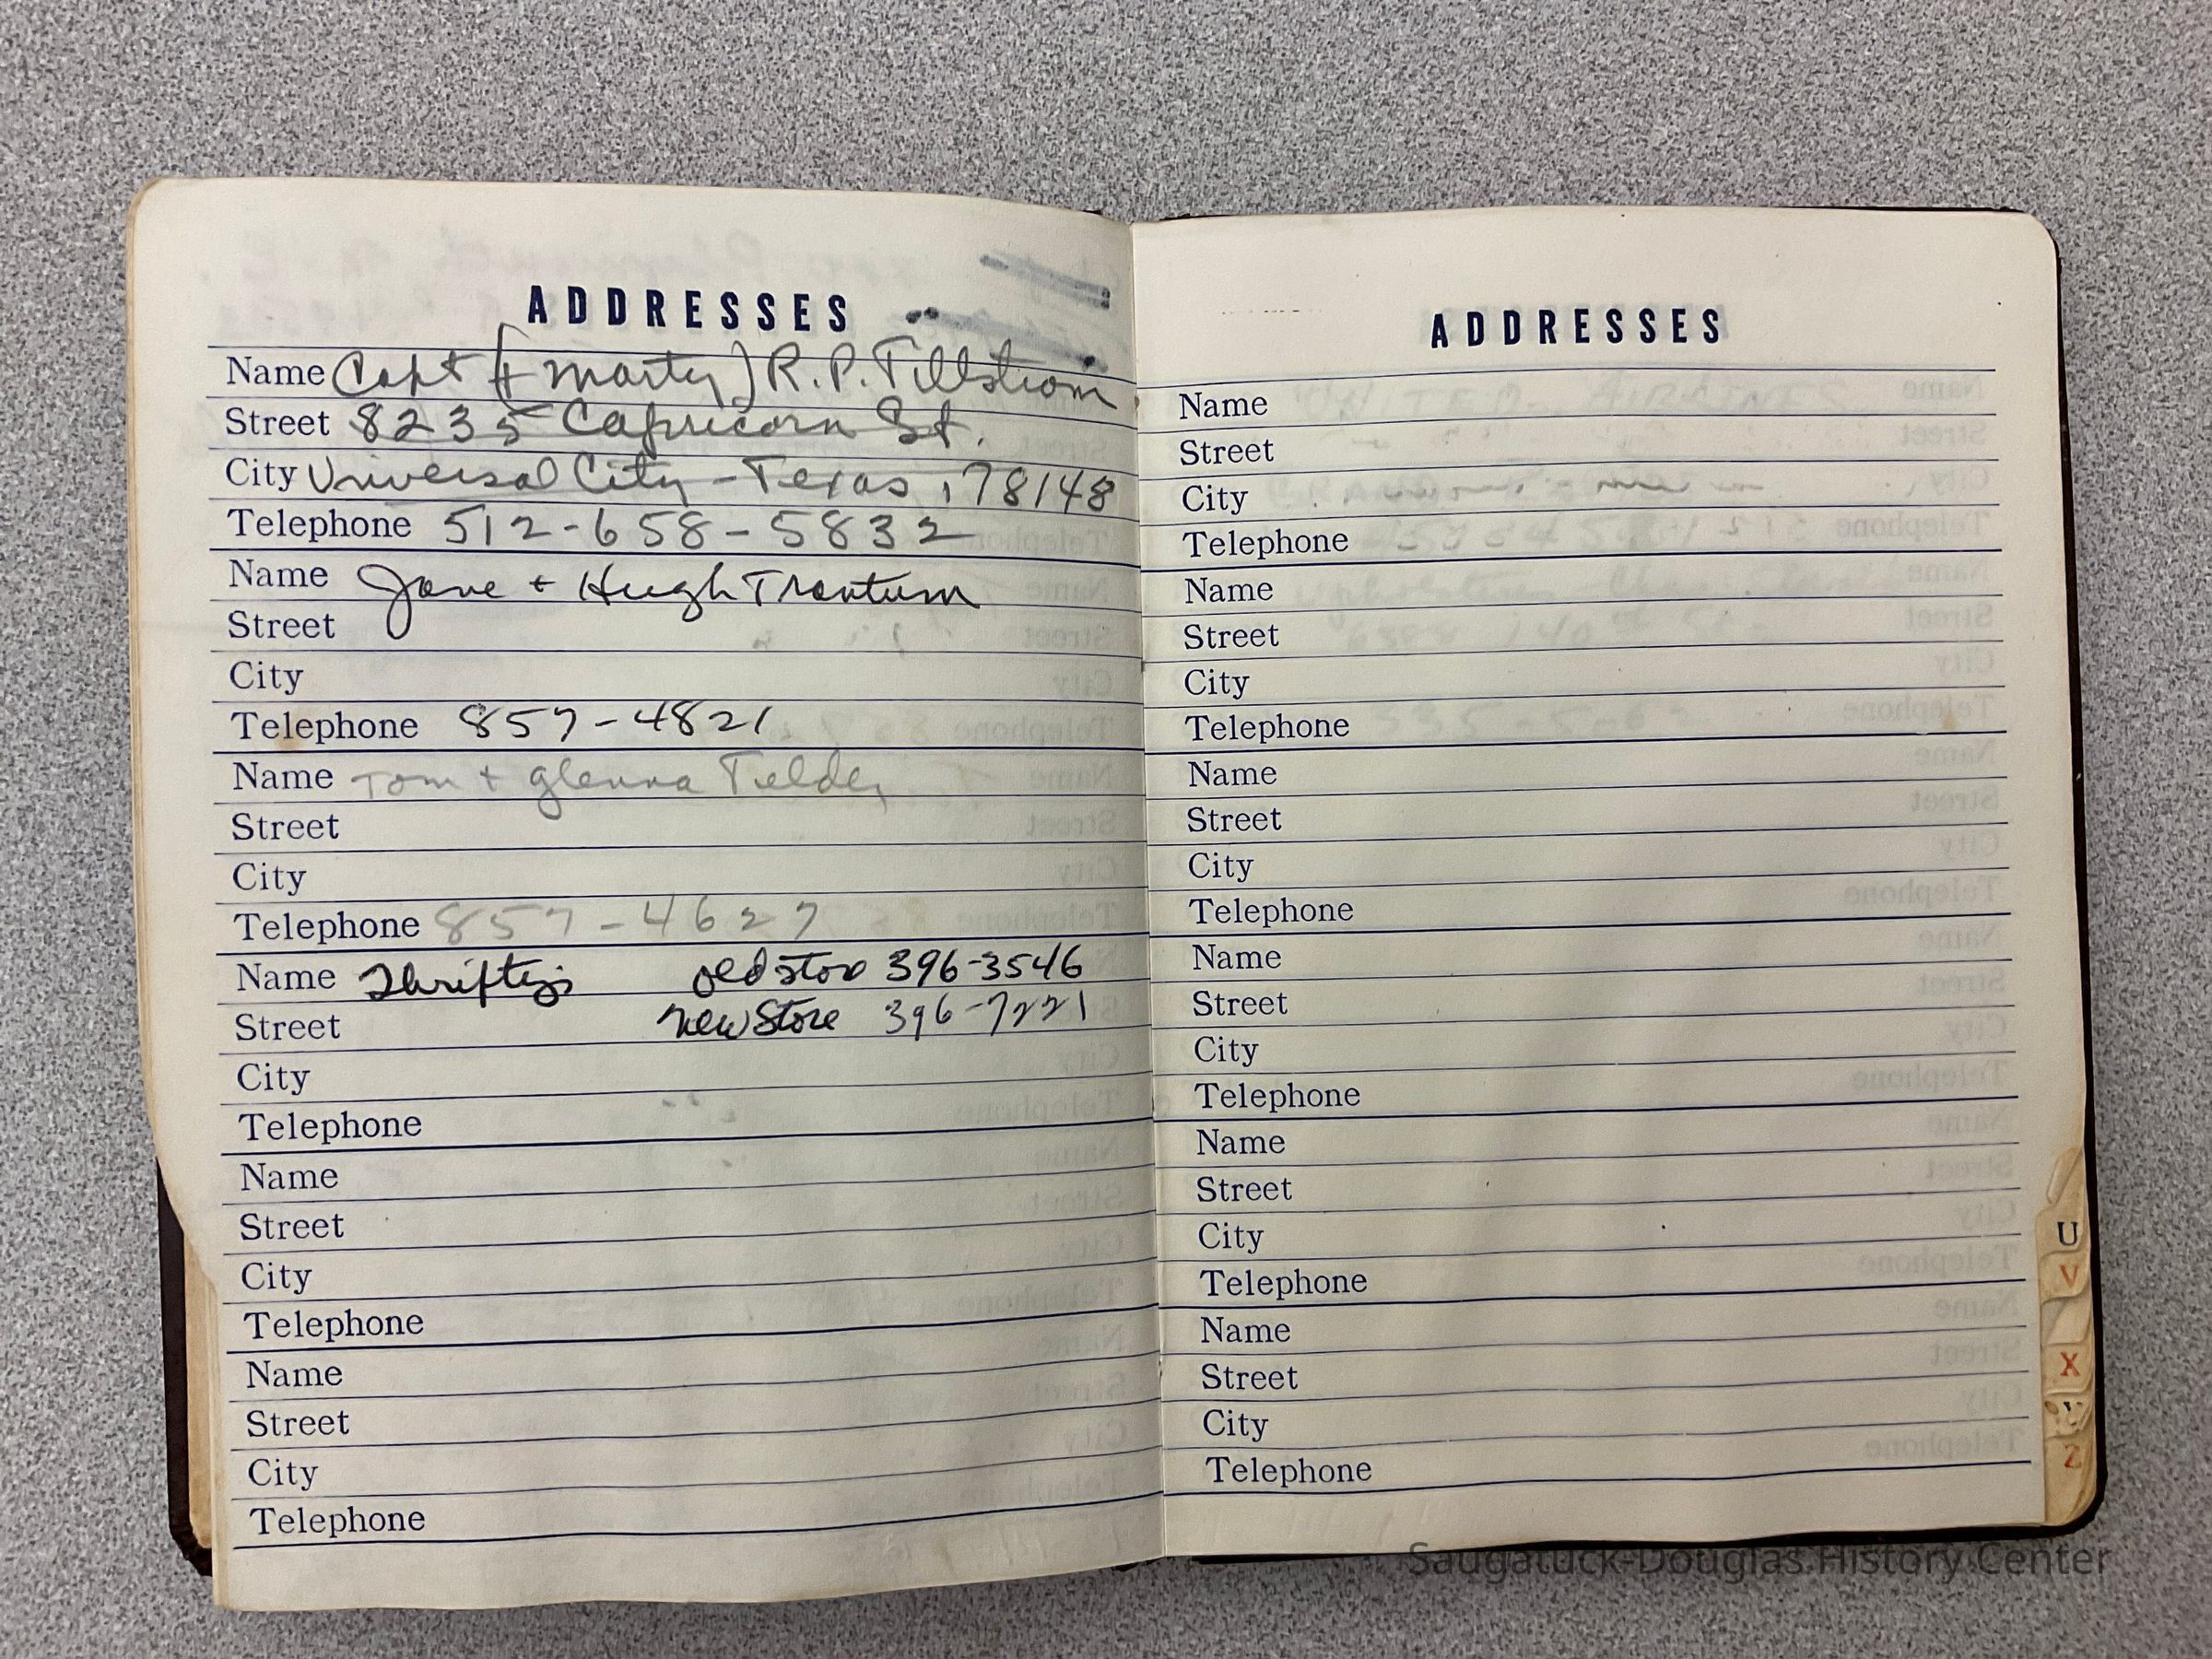 ADDRESSES
Name Capt (+ Marty) R.P. Tillstrom
Street 8235 Capricorn St.
City Universal City - Texas, 78148
Telephone 512-658-5832
Name Jane + Hugh Trantum
Street
City
Telephone 857-4821
Name Tom + Glenna Tielder
Street
City
Telephone 857-4627
Name Thrifty's old store 396-3546
Street new Store 396-7221
City
Telephone
Name
Street
City
Telephone
Name
Street
City
Telephone
ADDRESSES
Name
Street
City
Telephone
Name
Street
City
Telephone
Name
Street
City
Telephone
Name
Street
City
Telephone
Name
Street
City
Telephone
Name
Street
City
Telephone
U
V
X
Y
Z
Saugatuck-Douglas History Center